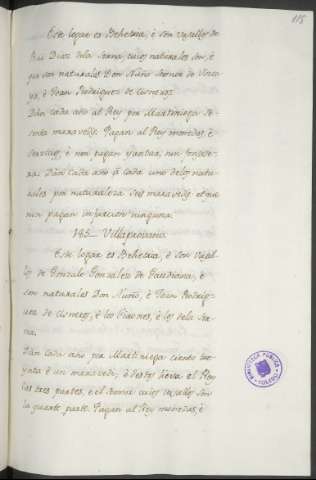 115
Este logar es Behetria, è son vasallos de
Rui Diaz dela Serna, cuios naturales son, è
que son naturales Don Nuño Señor de Vizca
ya, è Joan Rodriguez de Cisneros.
Dan cada año al Rey por Martiniega se
senta maravedis. Pagan al Rey monedas, è
servicios, è non pagan yantar, nin fonsade
ra: Dan cada año à cada uno delos natu
rales por naturaleza seis maravedis, et que
non pagan infurcion ninguna.
185_ Villaprovano
Este logar es Behetria, è son vasal
los de Gonzalo Gonzalez de
son naturales Don Nuño, è Joan Rodrig
uez de Cisneros, è los Girones, è los dela Ser
na.
Dan cada año por Martiniega ciento tre
ynta è un maravedi, è destos lieva el Rey
las tres partes, e el Señor cuios vasallos son
la quarta parte. Pagan al Rey monedas, è
BIBLIOTECA PUBLICA
TOLEDO